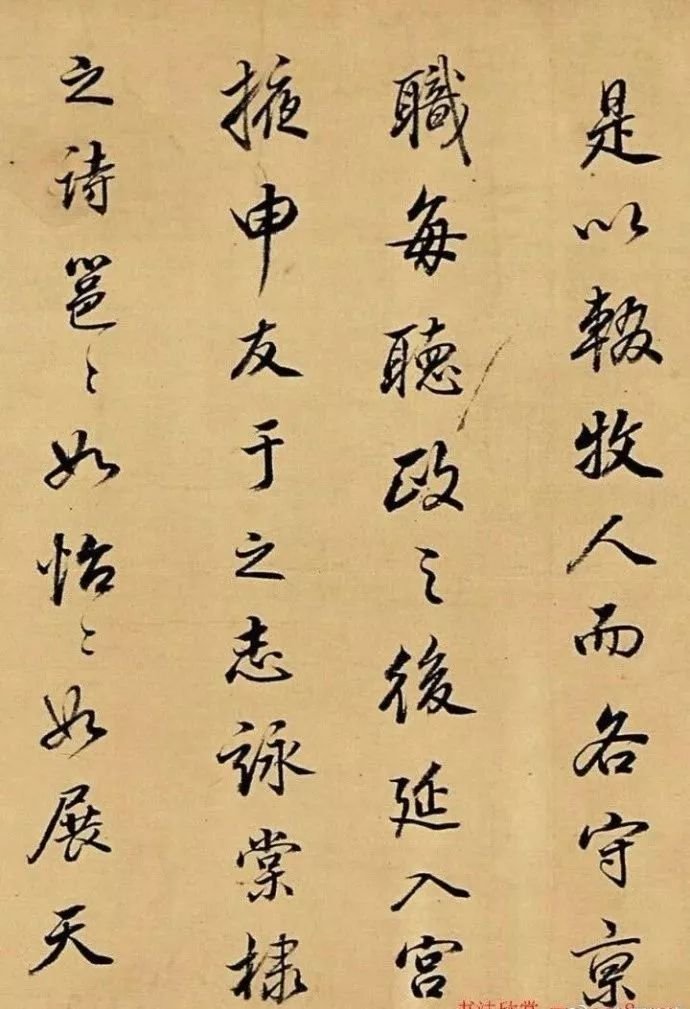 是以輟牧人而各守京
職每聽政之後延入宮
掖申友于之志詠棠棣
之詩邕〻如怡〻如展天
书法欣赏